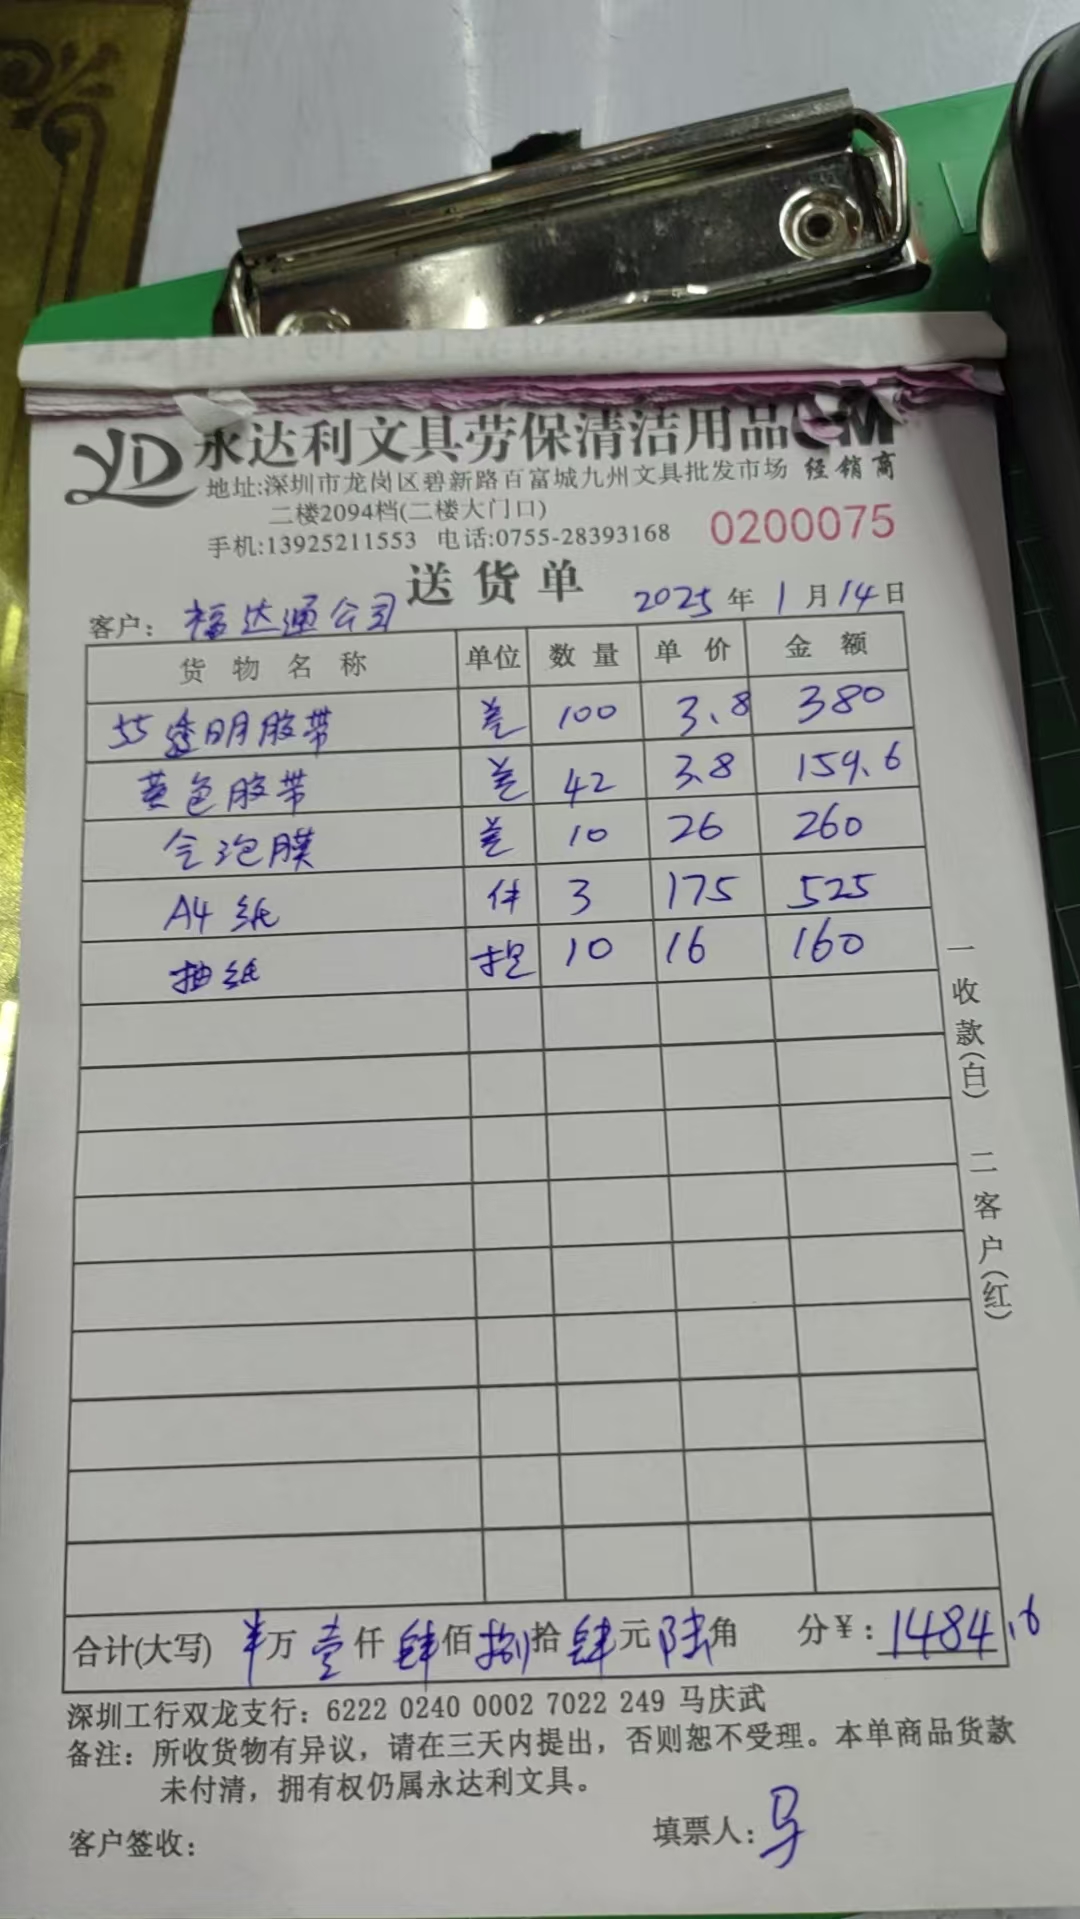 YD 永达利文具劳保清洁用品
经销商
地址:深圳市龙岗区碧新路百富城九州文具批发市场
二楼2094档(二楼大门口)
手机:13925211553 电话:0755-28393168
0200075
送货单
客户: 福达通公司 2025年1月14日
货物名称 单位 数量 单价 金额
55透明胶带 100 3.8 380
黄色胶带 42 3.8 159.6
气泡膜 10 26 260
A4纸 件 3 175 525
抽纸 提 10 16 160
一收款(白) 二客户(红)
合计(大写) 万壹仟肆佰捌拾肆元陆角 分¥: 1484.6
深圳工行双龙支行: 6222 0240 0002 7022 249 马庆武
备注: 所收货物有异议，请在三天内提出，否则恕不受理。本单商品货款
未付清，拥有权仍属永达利文具。
客户签收: 填票人: 马